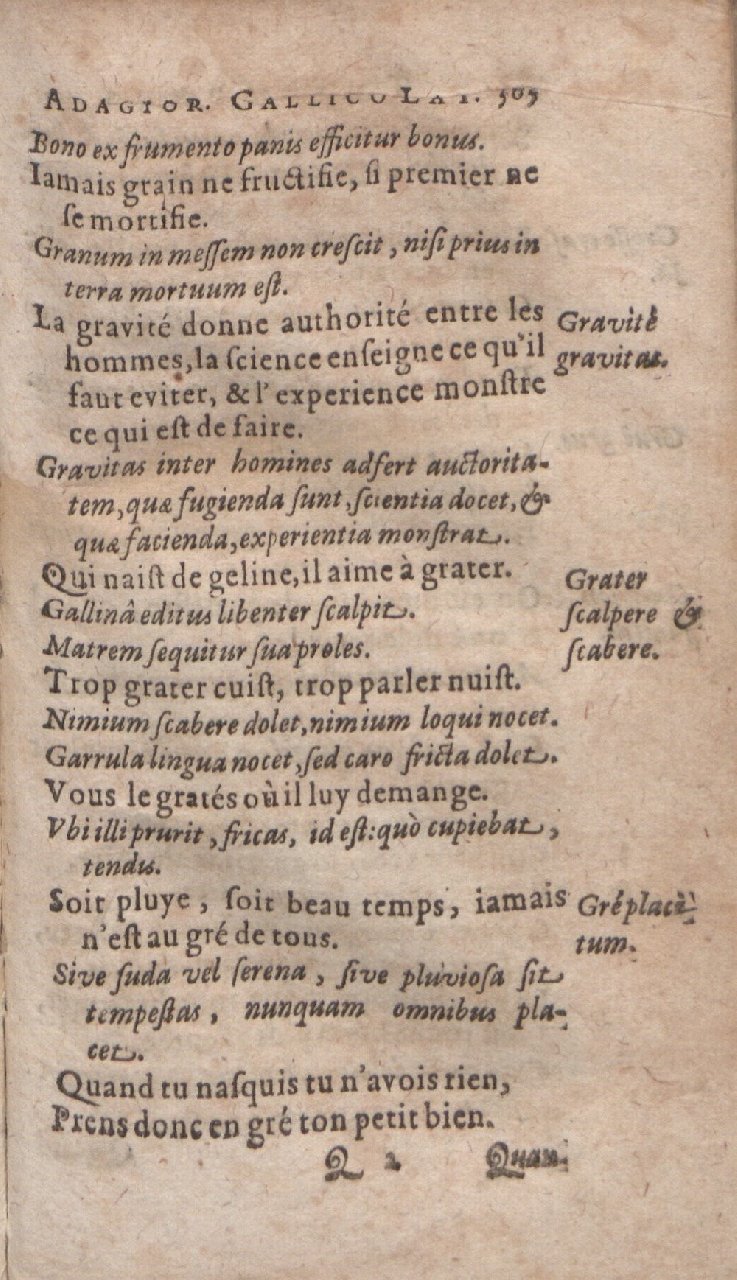 ADAGIOR. GALLICO LAT. 505
Bono ex frumento panis efficitur bonus.
Iamais grain ne fructifie, ſi premier ne
ſe mortifie.
Granum in meſſem non creſcit, niſi prius in
terra mortuum eſt.
La gravité donne authorité entre les
hommes, la ſcience enſeigne ce qu'il
faut eviter, & l'experience monſtre
ce qui eſt de faire.
Gravité
gravitas.
Gravitas inter homines adfert auctorita-
tem, quæ fugienda ſunt, ſcientia docet, &
quæ facienda, experientia monſtrat.
Qui naiſt de geline, il aime à grater.
Gallinâ editus libenter ſcalpit.
Matrem ſequitur ſua proles.
Grater
ſcalpere &
ſcabere.
Trop grater cuiſt, trop parler nuiſt.
Nimium ſcabere dolet, nimium loqui nocet.
Garrula lingua nocet, ſed caro fricta dolet.
Vous le gratés où il luy demange.
Vbi illi prurit, fricas, id eſt: quò cupiebat,
tendis.
Soit pluye, ſoit beau temps, iamais
n'eſt au gré de tous.
Gré placē-
tum.
Sive ſuda vel ſerena, ſive pluvioſa ſit
tempeſtas, nunquam omnibus pla-
cet.
Quand tu naſquis tu n'avois rien,
Prens donc en gré ton petit bien.
Q 2 Quan-